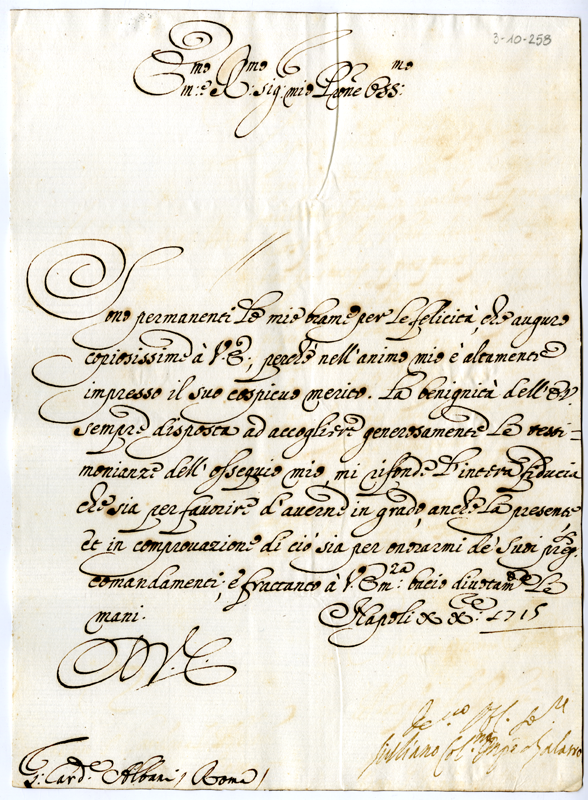 3-10-258
Em:mo R:mo sig: mio P̃rone Oss:mo
Sono permanenti le mie brame per le felicità, che auguro
copiosissime à V.E., perche nell'animo mio è altamente
impresso il suo cospicuo merito. La benignità dell'E.V.
sempre disposta ad accogliere generosamente le testi-
monianze dell'ossequio mio, mi rifonde l'intera fiducia
che sia per favorire d'averne in grado, anche la presente
et in comprovazione di ciò sia per onorarmi de' Suoi preg.
comandamenti; e frattanto à V. Em:ra bacio divotam.te le
mani. Napoli 1715
D.V.E.
Giuliano Col:
S: Card.e Albani / Roma /